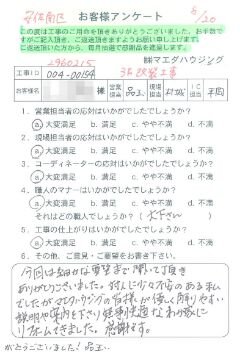 安佐南区 お客様アンケート 8/20
この度は工事のご用命を頂きありがとうございました。お手数ですがご記入頂き、ご返送頂きますようお願い申し上げます。
ご返送頂いた方から、毎月抽選で感謝品を進呈します。
2960215 ㈱マエダハウジング
工事ID 004-00154 改装工事
お名前 様 営業担当 工事担当
1. 営業担当者の応対はいかがでしたでしょうか?
a. 大変満足 b. 満足 c. 普通 d. やや不満 d. 不満
2. 工事担当者の応対はいかがでしたでしょうか?
a. 大変満足 b. 満足 c. 普通 d. やや不満 d. 不満
3. コーディネーターの応対はいかがでしたでしょうか?
a. 大変満足 b. 満足 c. 普通 d. やや不満 d. 不満
4. 職人のマナーはいかがでしたでしょうか?
a. 大変満足 b. 満足 c. 普通 d. やや不満 d. 不満
それはどの職人でしょうか? (大工さん)
5. 工事の仕上がりはいかがでしたでしょうか?
a. 大変満足 b. 満足 c. 普通 d. やや不満 d. 不満
6. その他、ご意見・ご要望をお聞かせ下さい。
今回は細かな要望まで聞いて頂き
ありがとうございました。
でしたがマエダハウジングの皆様が優しく解りやすい
説明や案内を下さり快適な わが家に
リフォームできました。感謝です。
がとうございました!